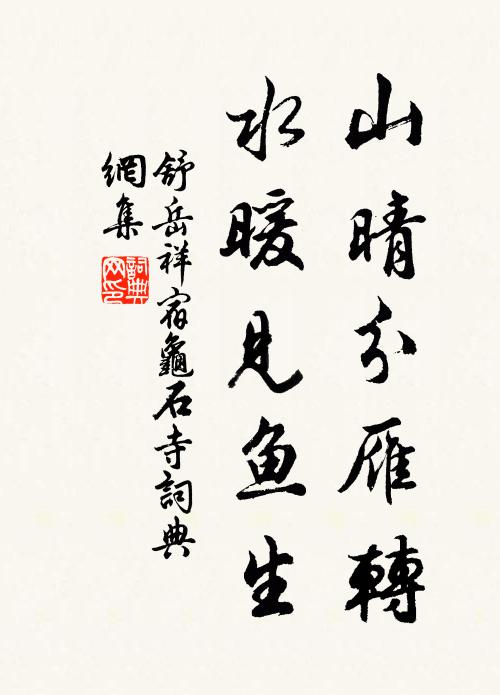 山晴分雁轉
水暖見鱼生
舒岳祥宿龜石寺詞典
網集
詞典
网印